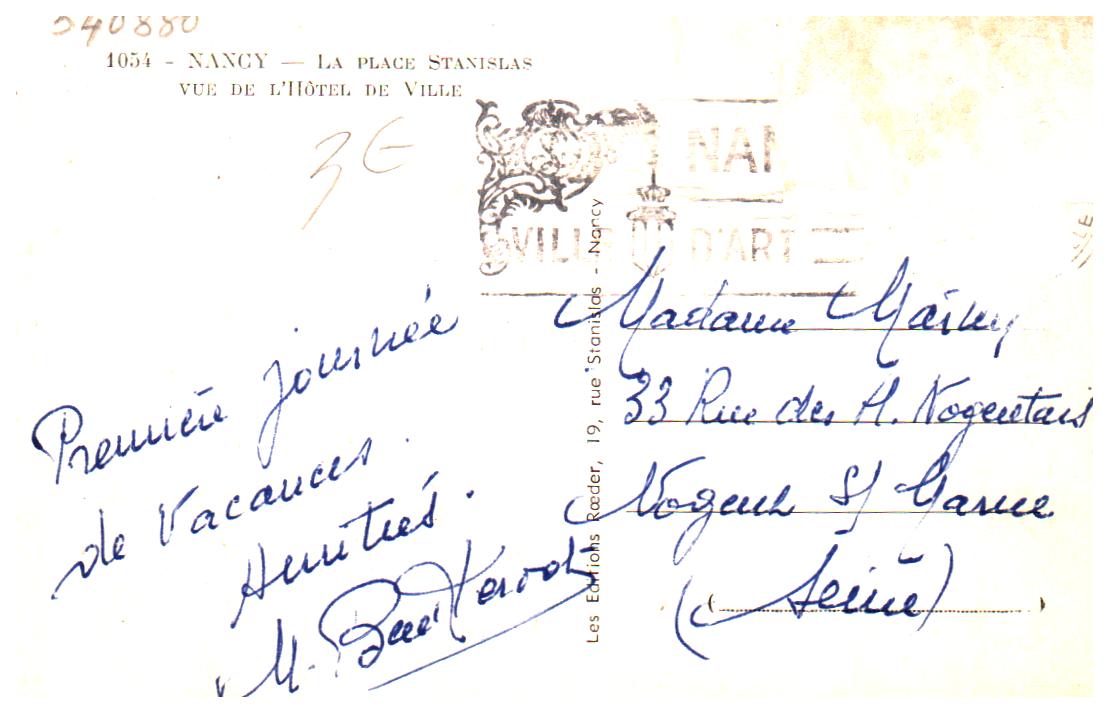 540880
1054 - NANCY — LA PLACE STANISLAS
VUE DE L'HÔTEL DE VILLE
3€
NAN
VILLE D'ART
Première journée
de Vacances.
Amitiés.
M.
Les Editions Rœder, 19, rue Stanislas - Nancy
Madame
33 Rue des H. Nogentais
Nogent S/ Marne
(Seine)